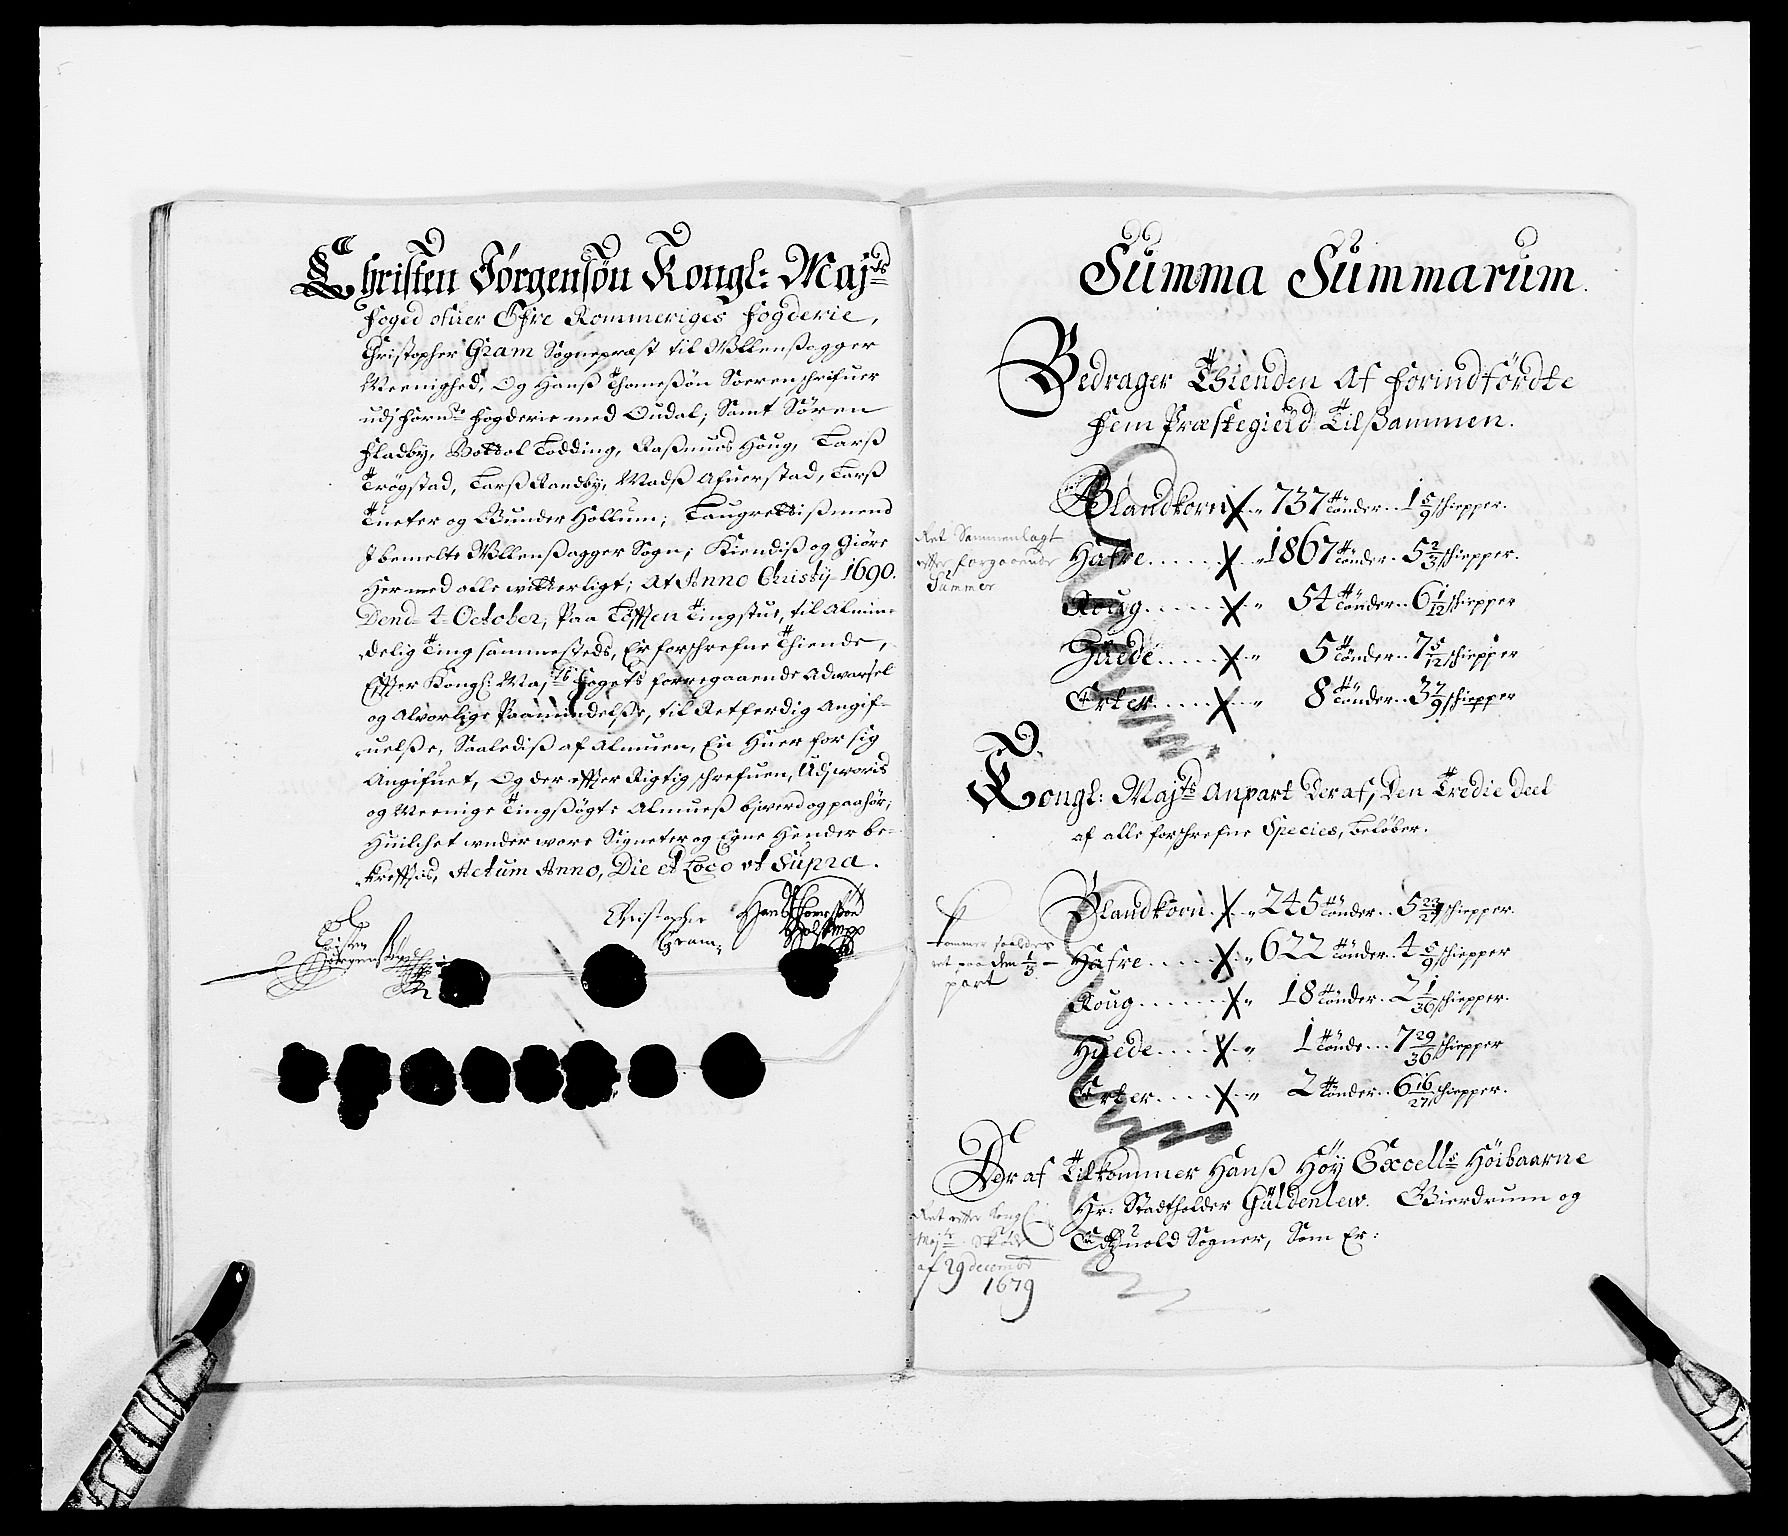 Christen Jørgensøn Kongl: Maj.ts
Foged ofuer Øfre Rommeriges Fogderie,
Christopher Gram Sognepræst til Wllenßagger
Meenighed, Og Hanß Thomeßøn Sorenschrifuer
udj forn.te Fogderie med Oudal; Samt Søren
Fladby, Todding, Raßmus Houg, Larß
Trøgstad, Larß Randby, Madß Afuerstad, Larß
Tueter og Gunder Hollum; Laugrettißmend
J bemelte Wllenßagger Sogn; Kiendiß og Giøre
Hermed alle witterligt; At Anno Christy 1690.
Dend 4 October, Paa Tingstue, til Almin-
delig Ting sammesteds, Er forschrefne Thiende,
Effter Kongl: Maj.ts Fogets forregaaende Adwarsel
og Alvorlige Paamindelße, til Retferdig Angif-
uelße, Saalediß af Almuen, En Huer for sig
Angifuet, Og der effter Rigtig schrefuen, Udj woris
og Meenige Tingßøgte Almueß og paahør;
Huilchet under wore Signeter og Egne Hender be-
kreftis, Actum Anno, Die et Loco ut Supra.
Christen
Jørgensøn
Christopher
Gram
Hans Thomessøn
Summa Summarum.
Bedrager Thienden Af Forindførdte
Fem Præstegield Tilßammen.
Blandkorn X 737 tønder 1 5/9 schiepper.
Hafre X 1867 tønder 5 2/3 schiepper.
Roug X 54 tønder 6 1/12 schiepper
Huede X 5 tønder 7 5/12 schiepper
Erter X 8 tønder 3 7/9 schiepper
Ret Sammenlagt
etter forgaaende
Summer
Kongl: Maj.ts Anpart Deraf, Den Tredie Deel
af alle forschrefne Species, beløber.
Blandkorn X 245 tønder 5 23/27 schiepper.
Hafre X 622 tønder 4 5/9 schiepper
Roug X 18 tønder 2 1/36 schiepper.
Huede X 1 tønde 7 29/36 schiepper
Erter X 2 tønder 6 16/27 schiepper.
kommer saaledes
ret paa den 1/3
part
Deraf Tilkommer Hanß Høy Excell.s Høibaarne
Hr: Stadtholder Güldenlew. Gierdrum og
Edtzuold Sogner, Som Er:
Ret etter Kongl
Maj.ts
af 29 decembr
1679